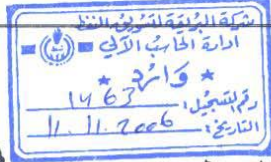 شركة البريقة لتسويق النفط
ادارة الحاسب الآلي
★ وارد ★
رقم التسجيل: 1463
التاريخ: 11.11.2006